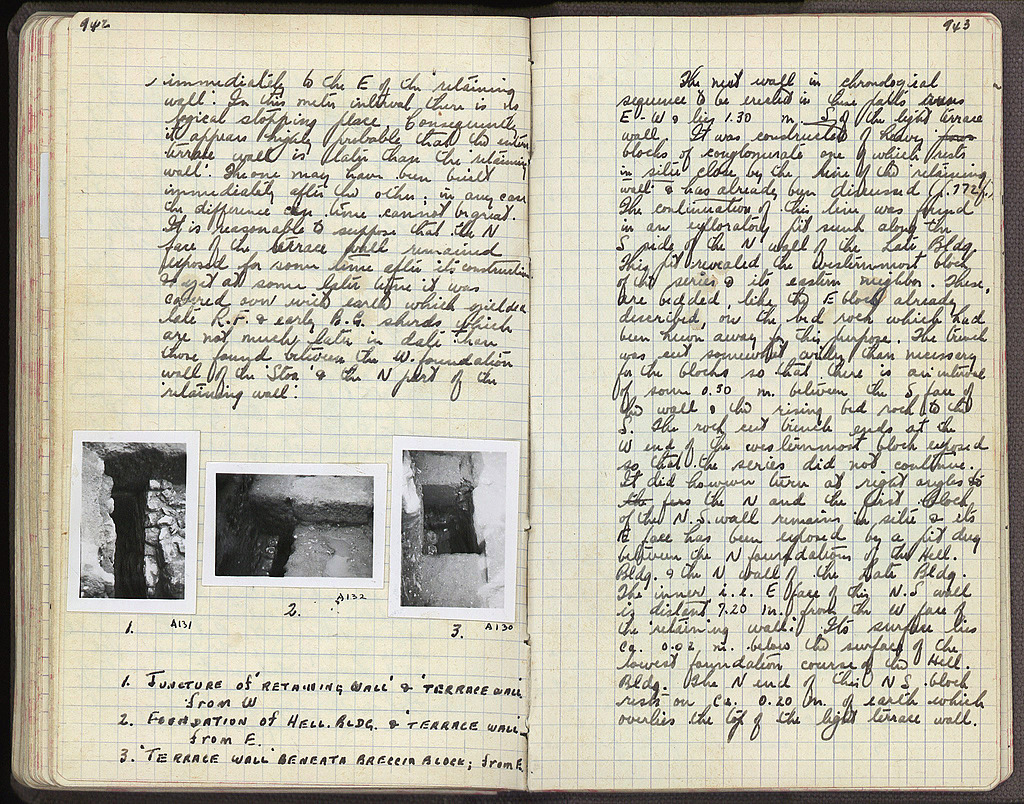 942
immediately to the E of the 'retaining
wall'. In this meter interval there is no
logical stopping place. Consequently
it appears highly probable that the entire
terrace wall is later than the 'retaining
wall'. The one may have been built
immediately after the other; in any case
the difference in time cannot be great.
It is reasonable to suppose that the N
face of the terrace wall remained
exposed for some time after its construction
& yet at some later time it was
covered over with earth which yielded
late R.F. & early B.G. sherds which
are not much later in date than
those found between the W. foundation
wall of the 'Stoa' & the N part of the
'retaining wall'.
1. A131
2. A132
3. A130
1. JUNCTURE OF 'RETAINING WALL' & 'TERRACE WALL'
from W
2. FOUNDATION OF HELL. BLDG. & 'TERRACE WALL'
from E.
3. 'TERRACE WALL' BENEATH BRECCIA BLOCK; from E
943
The next wall in chronological
sequence to be erected in these parts runs
E-W & lies 1.30 m. S of the light terrace
wall. It was constructed of heavy
blocks of conglomerate one of which rests
in situ close by the line of the 'retaining
wall' & has already been discussed (p. 772 f.)
The continuation of this line was found
in an exploratory pit sunk along the
S side of the N wall of the Late Bldg.
This pit revealed the westernmost block
of the series & its eastern neighbor. These,
are bedded, like the E block already
described, on the bed rock which had
been hewn away for this purpose. The trench
was cut somewhat wider than necessary
for the blocks so that there is an interval
of some 0.50 m. between the S face of
the wall & the rising bed rock to the
S. The rock cut trench ends at the
W end of the westernmost block exposed
so that the series did not continue.
It did however turn at right angles to
the N and the first block
of the N.S. wall remains in situ & its
E face has been exposed by a pit dug
between the N foundation of the Hell.
Bldg. & the N wall of the Late Bldg.
The inner i.e. E face of this N.S wall
is distant 7.20 m. from the W face of
the 'retaining wall'. Its surface lies
ca. 0.02 m. below the surface of the
lowest foundation course of the Hell.
Bldg. The N end of this N S block
rests on ca. 0.20 m. of earth which
overlies the top of the light terrace wall.